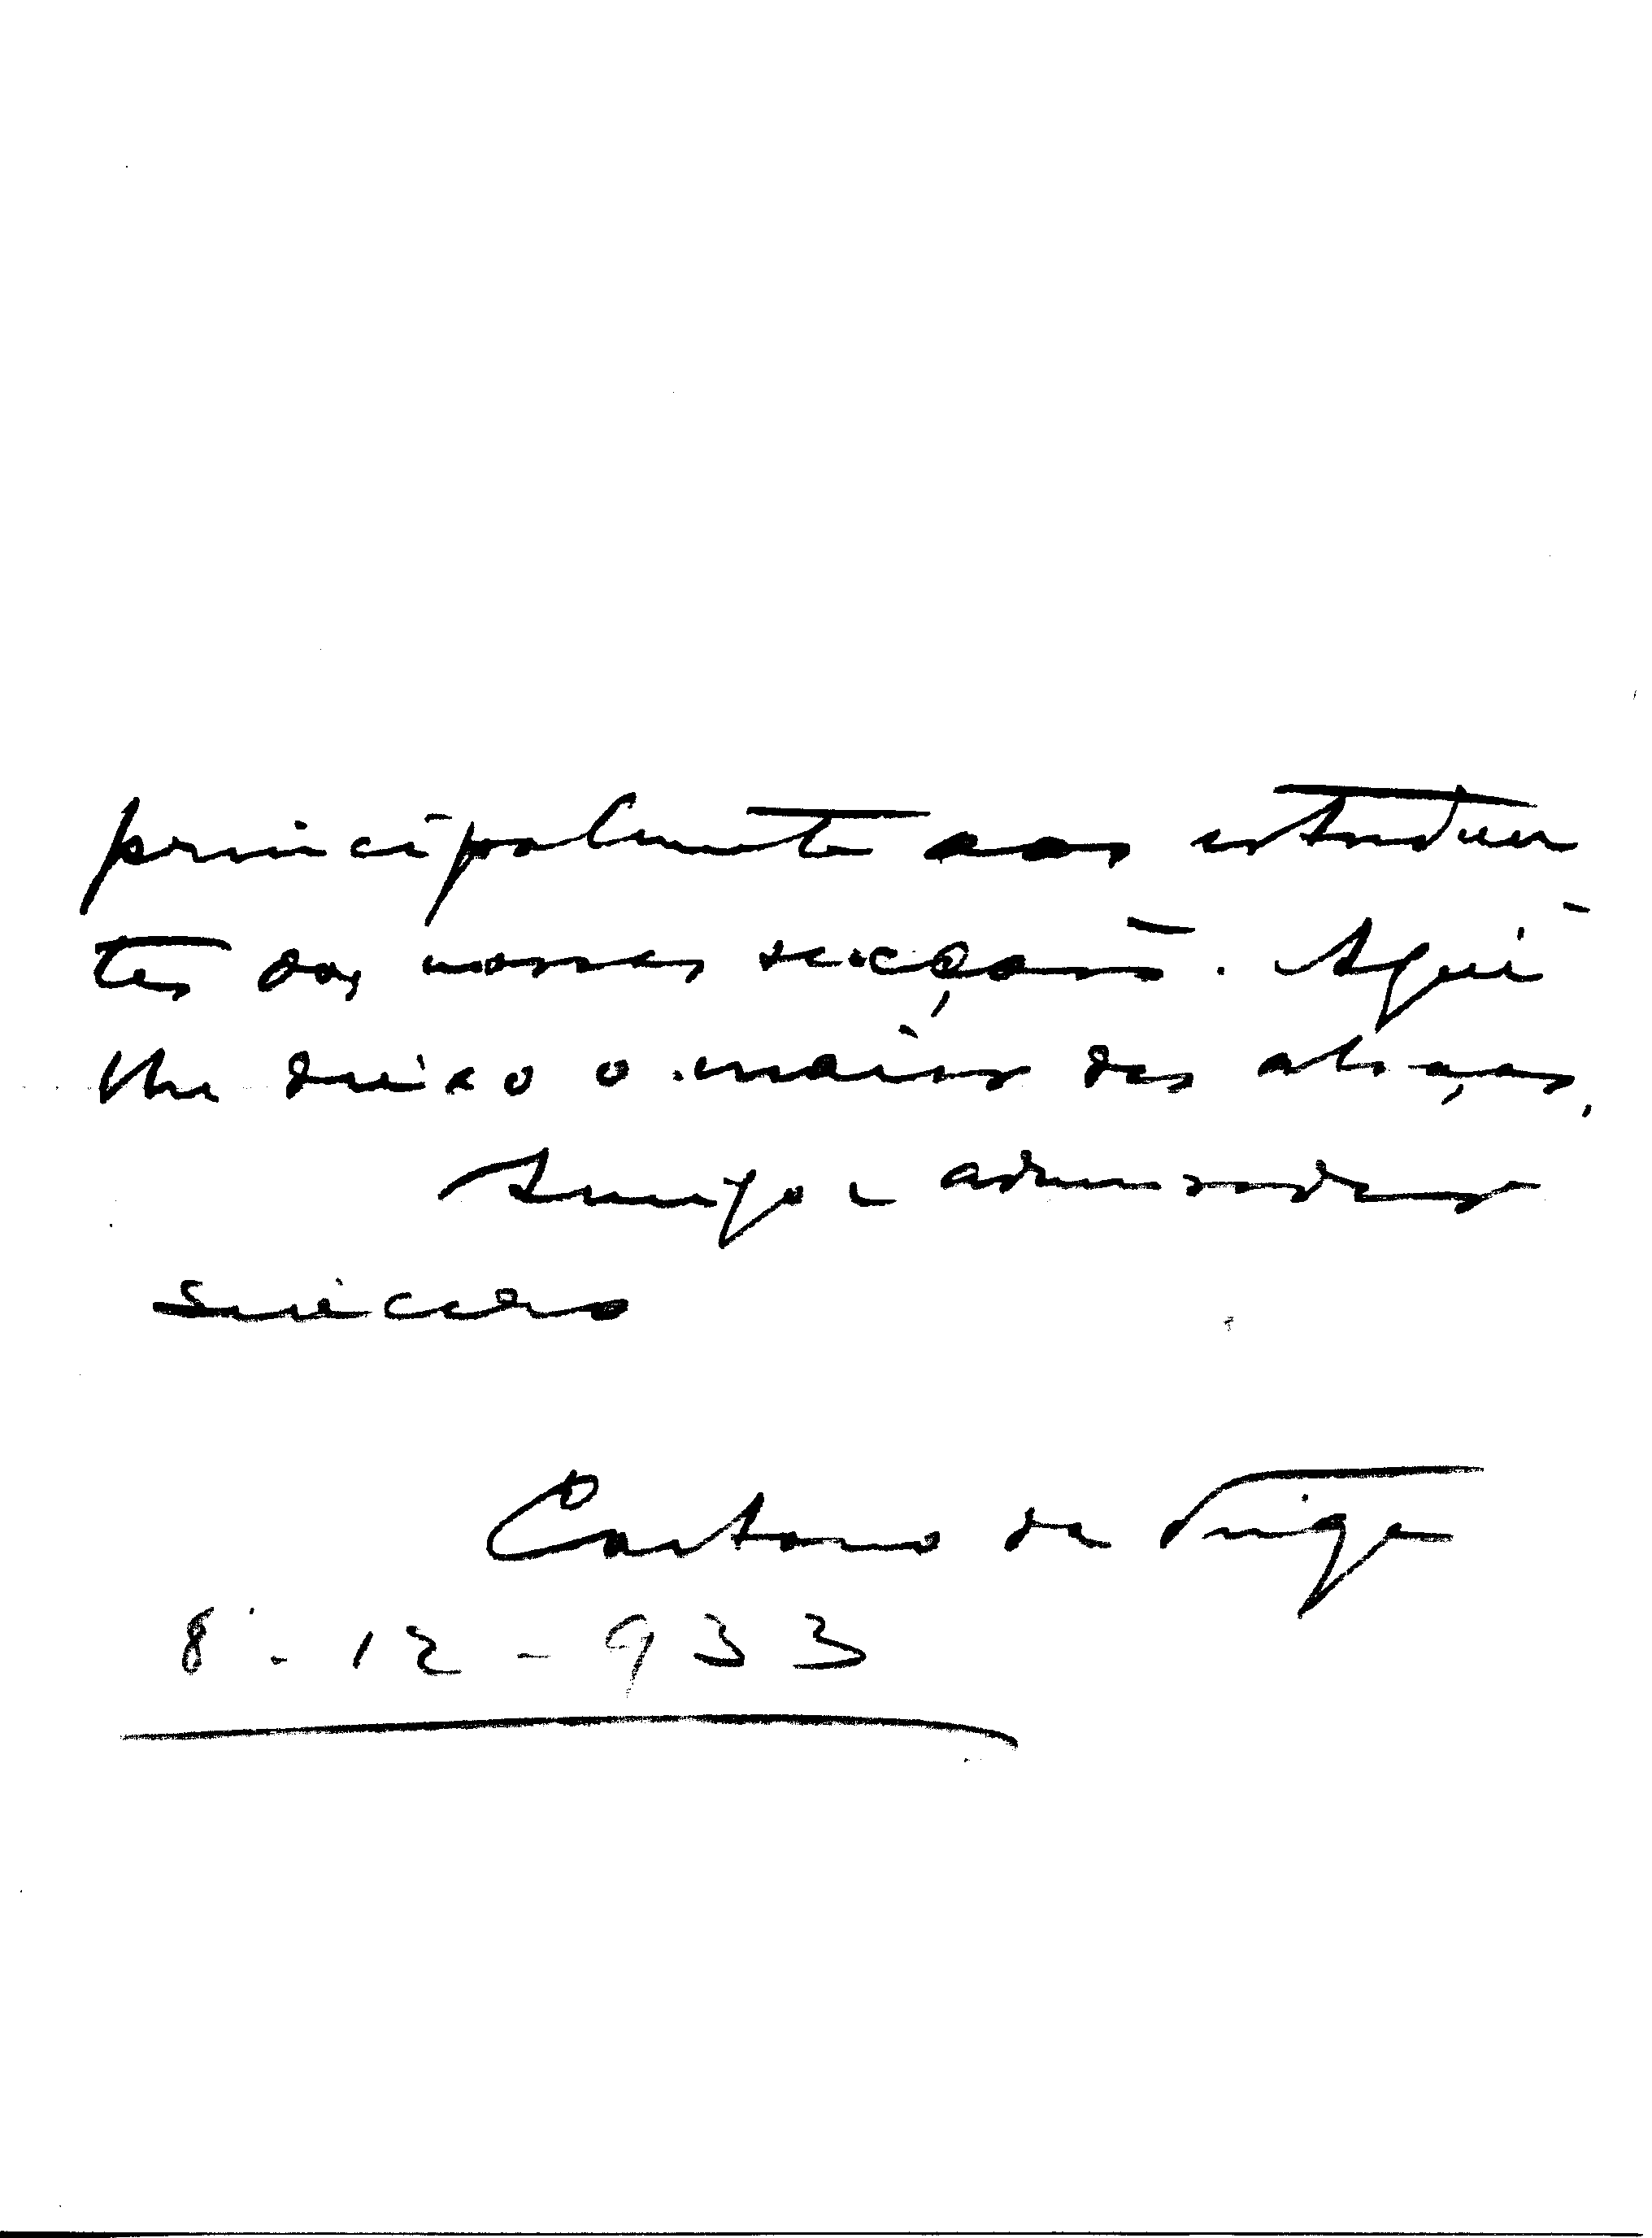 principalmente aos estuden
tes das nossas secções. Aqui
lhe deixo o maior dos abraços,
Amigo e admirador
sincero
Caetano da Veiga
8-12-933